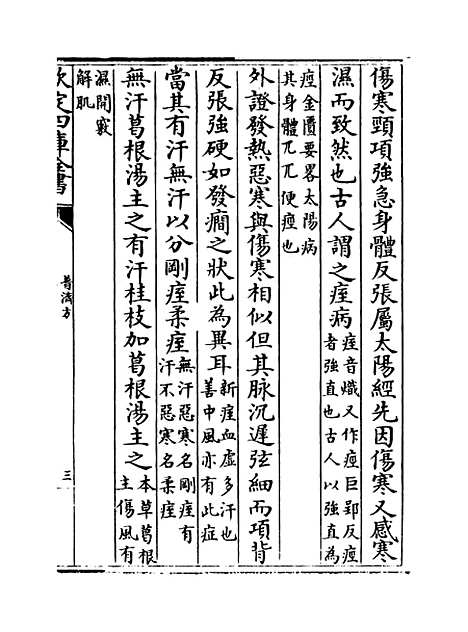 傷寒頸項強急身體反張屬太陽經先因傷寒又感寒
濕而致然也古人謂之痓病痓音熾又作痙巨郢反痙
者強直也古人以強直為
痙金匱要畧太陽病
其身體兀兀便痙也
外證發熱惡寒與傷寒相似但其脉沉遲弦細而項背
反張強硬如發癇之狀此為異耳新痓血虛多汗也
善中風亦有此症
當其有汗無汗以分剛痓柔痓無汗惡寒名剛痓有
汗不惡寒名柔痓
無汗葛根湯主之有汗桂枝加葛根湯主之本草葛根
主傷風有
濕開竅
解肌
欽定四庫全書
普濟方
三